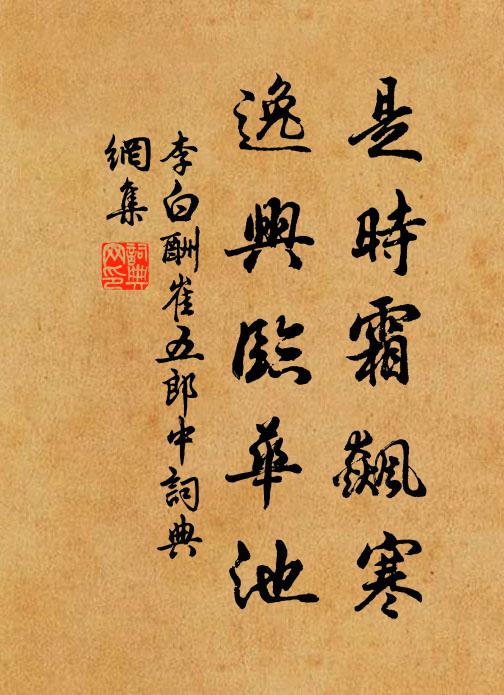 是時霜飆寒
逸興臨華池
李白酬崔五郎中詞典
網集
詞典網印